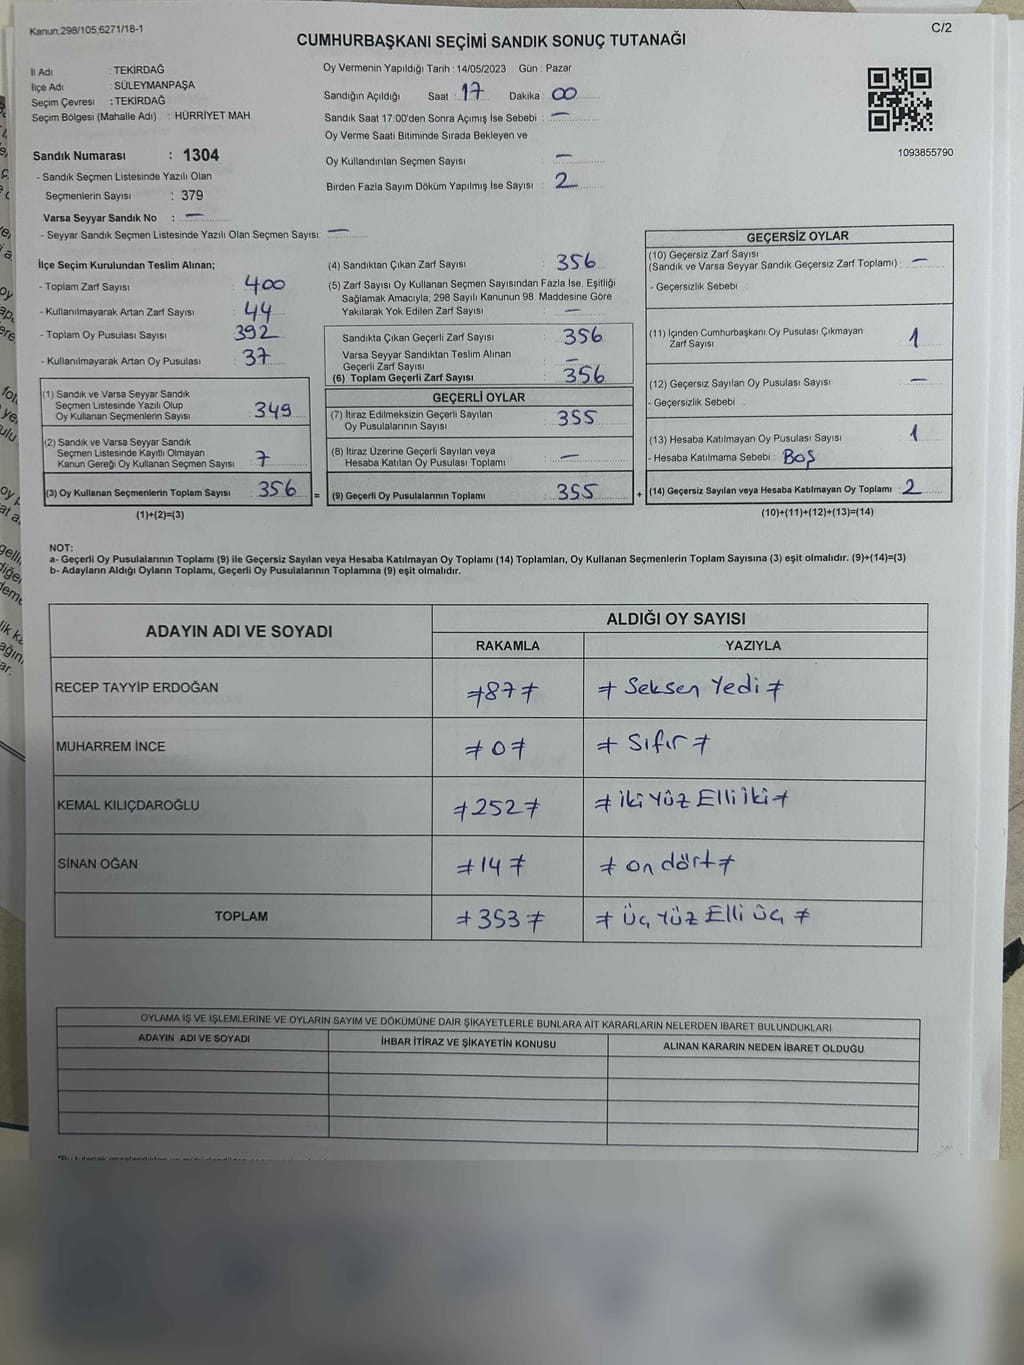 Kanun:298/105,6271/18-1
C/2
CUMHURBAŞKANI SEÇİMİ SANDIK SONUÇ TUTANAĞI
İl Adı : TEKİRDAĞ
İlçe Adı : SÜLEYMANPAŞA
Seçim Çevresi : TEKİRDAĞ
Seçim Bölgesi (Mahalle Adı) : HÜRRİYET MAH.
Sandık Numarası : 1304
- Sandık Seçmen Listesinde Yazılı Olan
Seçmenlerin Sayısı : 379
Varsa Seyyar Sandık No : —
- Seyyar Sandık Seçmen Listesinde Yazılı Olan Seçmen Sayısı: —
Oy Vermenin Yapıldığı Tarih : 14/05/2023 Gün : Pazar
Sandığın Açıldığı Saat : 17 Dakika : 00
Sandık Saat 17:00'den Sonra Açımış İse Sebebi : —
Oy Verme Saati Bitiminde Sırada Bekleyen ve
Oy Kullandırılan Seçmen Sayısı : —
Birden Fazla Sayım Döküm Yapılmış İse Sayısı : 2
1093855790
İlçe Seçim Kurulundan Teslim Alınan;
- Toplam Zarf Sayısı : 400
- Kullanılmayarak Artan Zarf Sayısı : 44
- Toplam Oy Pusulası Sayısı : 392
- Kullanılmayarak Artan Oy Pusulası : 37
(1) Sandık ve Varsa Seyyar Sandık
Seçmen Listesinde Yazılı Olup
Oy Kullanan Seçmenlerin Sayısı : 349
(2) Sandık ve Varsa Seyyar Sandık
Seçmen Listesinde Kayıtlı Olmayan
Kanun Gereği Oy Kullanan Seçmen Sayısı : 7
(3) Oy Kullanan Seçmenlerin Toplam Sayısı : 356
(1)+(2)=(3)
=
(4) Sandıktan Çıkan Zarf Sayısı : 356
(5) Zarf Sayısı Oy Kullanan Seçmen Sayısından Fazla İse, Eşitliği
Sağlamak Amacıyla; 298 Sayılı Kanunun 98. Maddesine Göre
Yakılarak Yok Edilen Zarf Sayısı : —
Sandıkta Çıkan Geçerli Zarf Sayısı : 356
Varsa Seyyar Sandıktan Teslim Alınan
Geçerli Zarf Sayısı : —
(6) Toplam Geçerli Zarf Sayısı : 356
GEÇERLİ OYLAR
(7) İtiraz Edilmeksizin Geçerli Sayılan
Oy Pusulalarının Sayısı : 355
(8) İtiraz Üzerine Geçerli Sayılan veya
Hesaba Katılan Oy Pusulası Toplamı : —
(9) Geçerli Oy Pusulalarının Toplamı : 355
+
GEÇERSİZ OYLAR
(10) Geçersiz Zarf Sayısı
(Sandık ve Varsa Seyyar Sandık Geçersiz Zarf Toplamı) : —
- Geçersizlik Sebebi :
(11) İçinden Cumhurbaşkanı Oy Pusulası Çıkmayan
Zarf Sayısı : 1
(12) Geçersiz Sayılan Oy Pusulası Sayısı : —
- Geçersizlik Sebebi :
(13) Hesaba Katılmayan Oy Pusulası Sayısı : 1
- Hesaba Katılmama Sebebi : BOŞ
(14) Geçersiz Sayılan veya Hesaba Katılmayan Oy Toplamı : 2
(10)+(11)+(12)+(13)=(14)
NOT:
a- Geçerli Oy Pusulalarının Toplamı (9) ile Geçersiz Sayılan veya Hesaba Katılmayan Oy Toplamı (14) Toplamları, Oy Kullanan Seçmenlerin Toplam Sayısına (3) eşit olmalıdır. (9)+(14)=(3)
b- Adayların Aldığı Oyların Toplamı, Geçerli Oy Pusulalarının Toplamına (9) eşit olmalıdır.
ADAYIN ADI VE SOYADI
ALDIĞI OY SAYISI
RAKAMLA YAZIYLA
RECEP TAYYİP ERDOĞAN ≠87≠ ≠ Seksen Yedi ≠
MUHARREM İNCE ≠0≠ ≠ Sıfır ≠
KEMAL KILIÇDAROĞLU ≠252≠ ≠ İki Yüz Elli İki ≠
SİNAN OĞAN ≠14≠ ≠ on dört ≠
TOPLAM ≠353≠ ≠ Üç Yüz Elli üç ≠
OYLAMA İŞ VE İŞLEMLERİNE VE OYLARIN SAYIM VE DÖKÜMÜNE DAİR ŞİKAYETLERLE BUNLARA AİT KARARLARIN NELERDEN İBARET BULUNDUKLARI
ADAYIN ADI VE SOYADI İHBAR İTİRAZ VE ŞİKAYETİN KONUSU ALINAN KARARIN NEDEN İBARET OLDUĞU